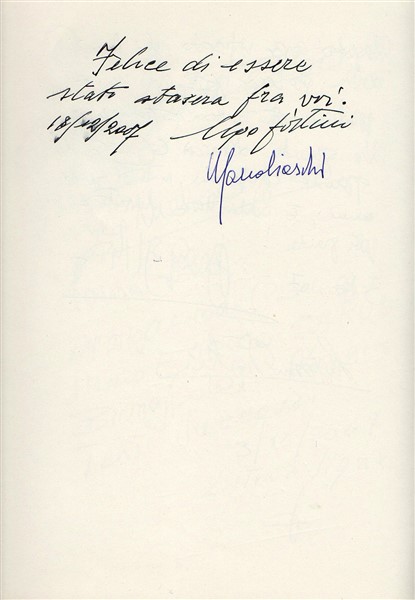 Felice di essere
stato stasera fra voi.
18/12/2007 Ugo Fortini